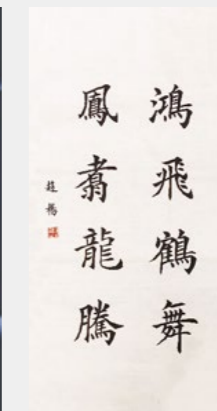 鴻飛鶴舞
鳳翥龍騰
趙楊